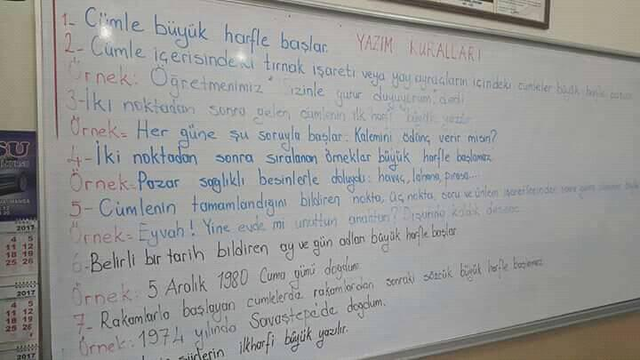 YAZIM KURALLARI
1- Cümle büyük harfle başlar
2- Cümle içerisindeki tırnak işareti veya yay ayraçların içindeki cümleler büyük harfle
Örnek: Öğretmenimiz " Sizinle gurur duyuyorum" dedi
3-İki noktadan sonra gelen cümlenin ilk harfi büyük yazılır
Örnek= Her güne şu soruyla başlar: Kalemini ödünç verir misin?
4-İki noktadan sonra sıralanan örnekler büyük harfle başlamaz
Örnek= Pazar sağlıklı besinlerle doluydu: havuç, lahana, pırasa...
5- Cümlenin tamamlandığını bildiren nokta, üç nokta, soru ve ünlem işaretlerinden sonra
Örnek= Eyvah! Yine evde mi unuttun anahtarı? Dışarıda kaldık desene
6-Belirli bir tarih bildiren ay ve gün adları büyük harfle başlar
Örnek: 5 Aralık 1980 Cuma günü doğdum
7- Rakamlarla başlayan cümlelerde rakamlardan sonraki sözcük büyük harfle başlamaz
Örnek: 1974 yılında Savaştepe'de doğdum.
ilkharfi büyük yazılır.
SU
2017
4 5
11 12
18 19
25 26
2017
4 5
11 12
18 19
25 26
2017